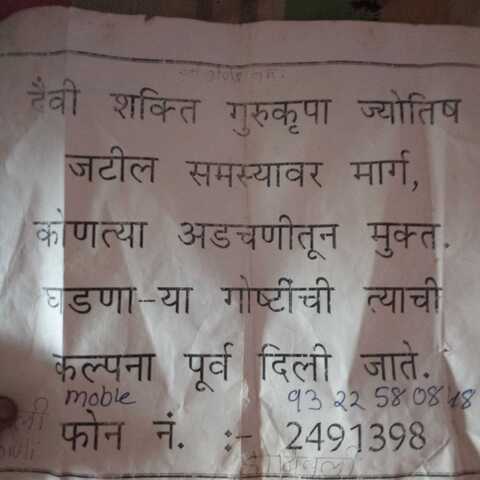 दैवी शक्ति गुरुकृपा ज्योतिष
जटील समस्यावर मार्ग,
कोणत्या अडचणीतून मुक्त.
घडणा-या गोष्टींची त्याची
कल्पना पूर्व दिली जाते.
moble 93 22 58 08 48
फोन नं. :- 2491398